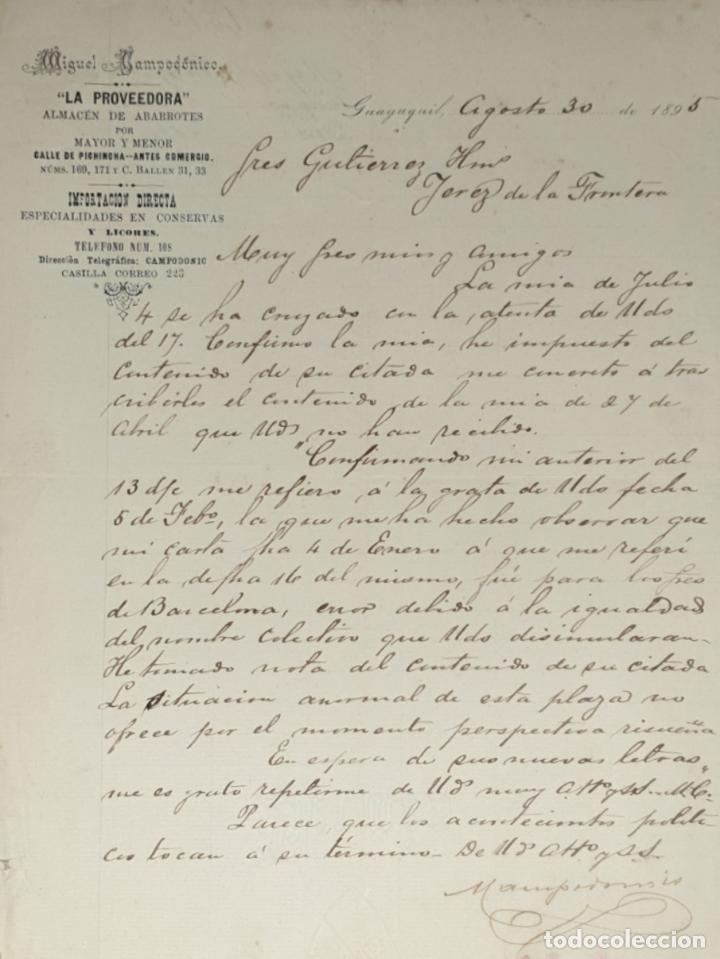 Miguel Campodónico.
"LA PROVEEDORA"
ALMACÉN DE ABARROTES
POR
MAYOR Y MENOR
CALLE DE PICHINCHA—ANTES COMERGIO.
NÚMS. 169, 171 Y C. BALLEN 31, 33
IMPORTACION DIRECTA
ESPECIALIDADES EN CONSERVAS
Y LICORES.
TELEFONO NUM. 108
Dirección Telegráfica: CAMPODONIC
CASILLA CORREO 223
Guayaquil, Agosto 30 de 1895
Sres Gutierrez Hnos
Jerez de la Frontera
Muy Sres mios y amigos
La mia de Julio
4 se ha cruzado con la atenta de Uds
del 17. Confirmo la mia, he impuesto del
contenido de su citada me concreto á tras
cribirles el contenido de la mia de 27 de
Abril que Uds no han recibido.
"Confirmando mi anterior del
13 d/c me refiero á la grata de Uds fecha
5 de Febo, la que me ha hecho observar que
mi carta fha 4 de Enero á que me referí
en la de fha 16 del mismo, fué para los Sres
de Barcelona, error debido á la igualdad
del nombre colectivo que Uds disimularan-
He tomado nota del contenido de su citada
La situacion anormal de esta plaza no
ofrece por el momento perspectiva risueña
En espera de sus nuevas letras,
me es grato repetirme de Uds muy Atto y SS. M.C."
Parece, que los acontecimtos politi-
cos tocan á su término- De Uds Atto y SS.
MCampodonico
todocoleccion.net